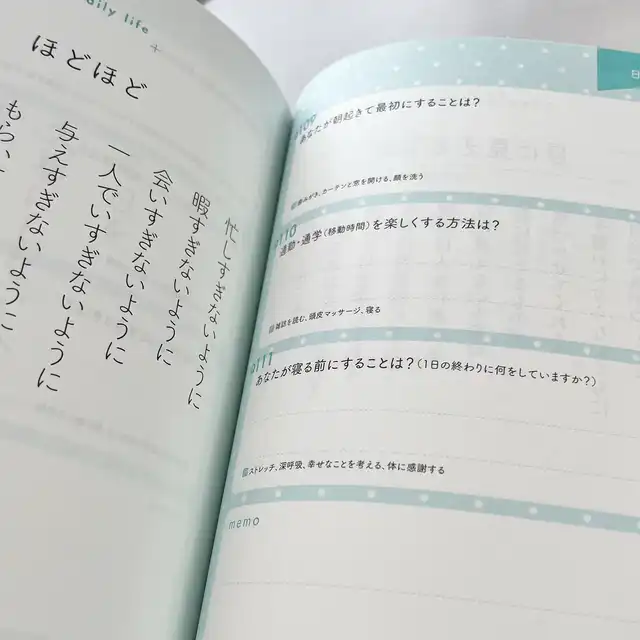 daily life +
ほどほど
忙しすぎないように
暇すぎないように
会いすぎないように
一人でいすぎないように
与えすぎないように
もらい
日
109
あなたが朝起きて最初にすることは?
歯みがき、カーテンと窓を開ける、顔を洗う
110
通勤・通学(移動時間)を楽しくする方法は?
雑誌を読む、頭皮マッサージ、寝る
111
あなたが寝る前にすることは?(1日の終わりに何をしていますか?)
ストレッチ、深呼吸、幸せなことを考える、体に感謝する
memo